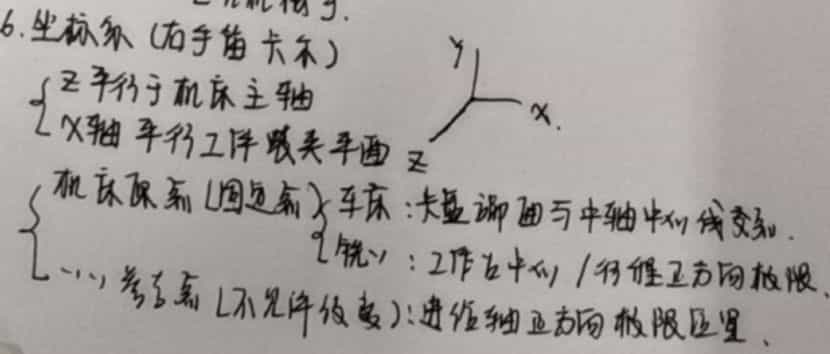 6.坐标系(右手笛卡尔)
Z平行于机床主轴
X轴平行工件装夹平面
Y
X.
Z
机床原点(固定点) 车床:卡盘端面与中轴中心线交点.
铣〃:工作台中心/行程正方向极限.
…参考点(不允许改变):进给轴正方向极限位置.